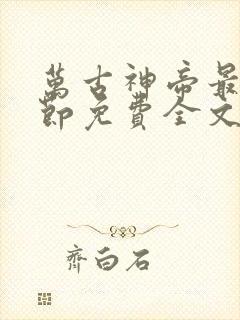 萬古神帝最
節免費全文
齊白石